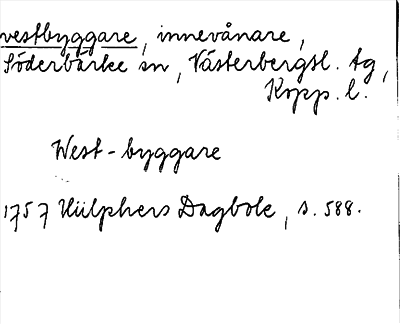 vestbyggare, innevånare,
Söderbärke sn, Västerbergsl. tg,
Kopp. l.
West-byggare
1757 Hülphers Dagbok, s. 588.